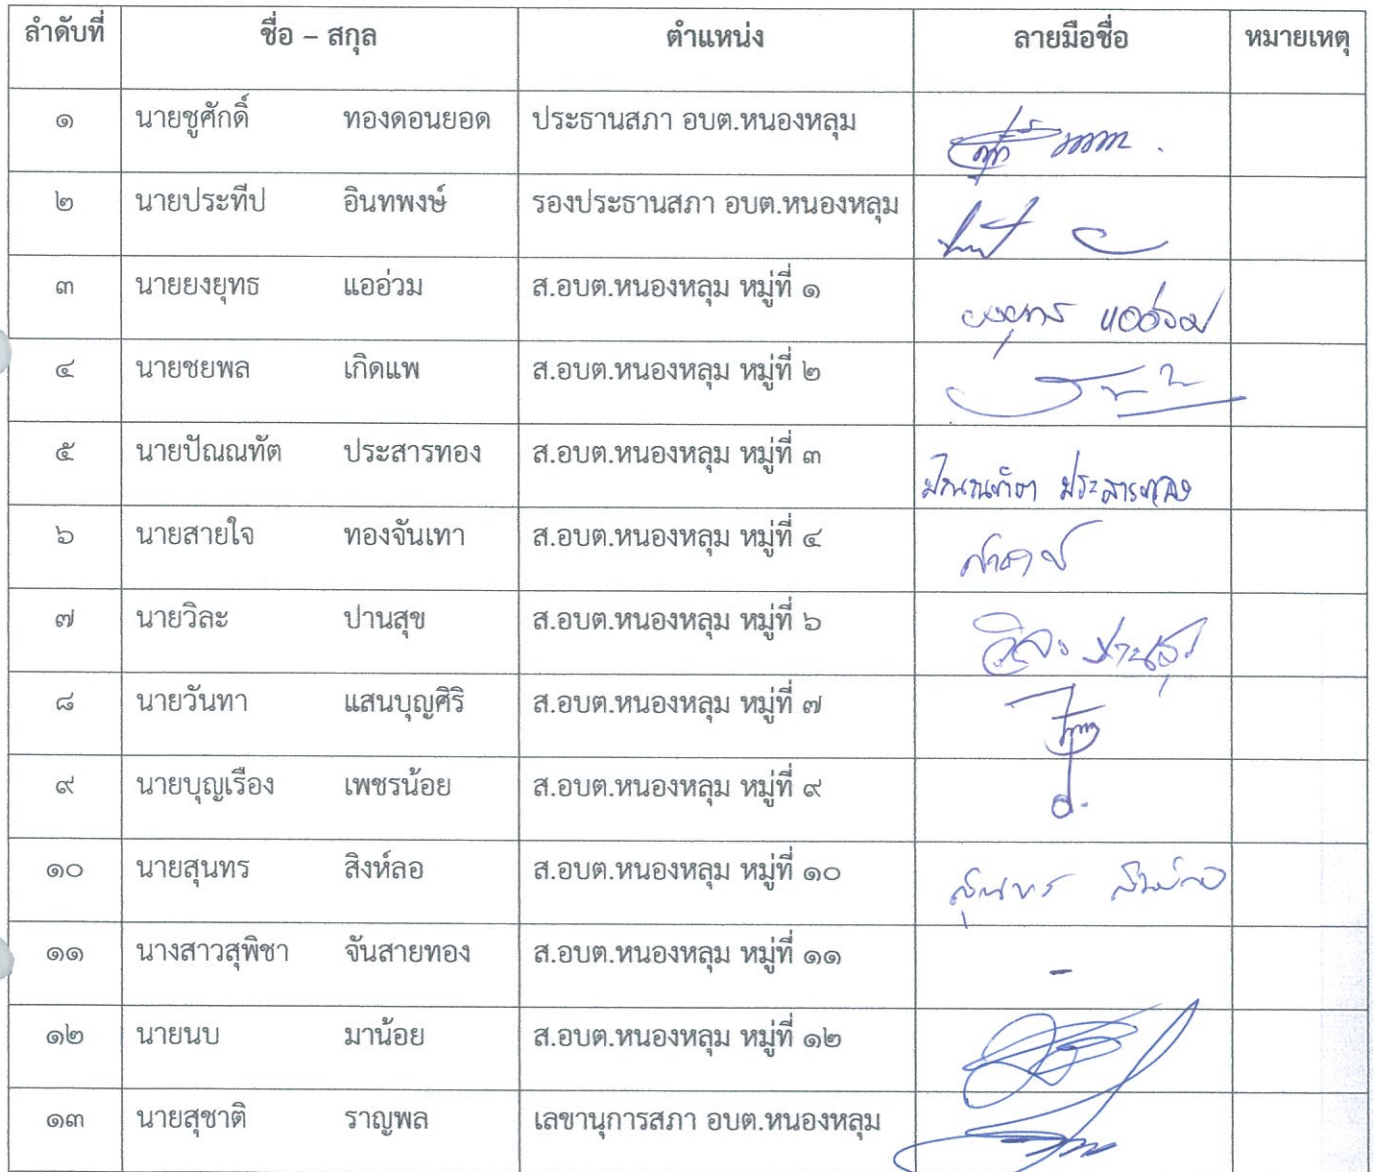 ลำดับที่ ชื่อ – สกุล ตำแหน่ง ลายมือชื่อ หมายเหตุ
๑ นายชูศักดิ์ ทองดอนยอด ประธานสภา อบต.หนองหลุม
๒ นายประทีป อินทพงษ์ รองประธานสภา อบต.หนองหลุม
๓ นายยงยุทธ แออ่วม ส.อบต.หนองหลุม หมู่ที่ ๑ ยงยุทธ แออ่วม
๔ นายชยพล เกิดแพ ส.อบต.หนองหลุม หมู่ที่ ๒
๕ นายปัณณทัต ประสารทอง ส.อบต.หนองหลุม หมู่ที่ ๓ ประสารทอง
๖ นายสายใจ ทองจันเทา ส.อบต.หนองหลุม หมู่ที่ ๔
๗ นายวิละ ปานสุข ส.อบต.หนองหลุม หมู่ที่ ๖ วิละ ปานสุข
๘ นายวันทา แสนบุญศิริ ส.อบต.หนองหลุม หมู่ที่ ๗
๙ นายบุญเรือง เพชรน้อย ส.อบต.หนองหลุม หมู่ที่ ๙
๑๐ นายสุนทร สิงห์ลอ ส.อบต.หนองหลุม หมู่ที่ ๑๐ สุนทร สิงห์ลอ
๑๑ นางสาวสุพิชา จันสายทอง ส.อบต.หนองหลุม หมู่ที่ ๑๑ -
๑๒ นายนบ มาน้อย ส.อบต.หนองหลุม หมู่ที่ ๑๒
๑๓ นายสุชาติ ราญพล เลขานุการสภา อบต.หนองหลุม